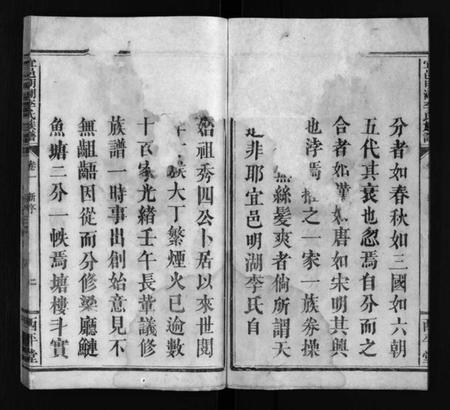 分者如春秋如三國如六朝
五代其衰也忽焉自分而之
合者如漢如唐如宋明其興
也浡焉推之一家一族券操
無絲髮爽者倘所謂天
是非耶宜邑明湖李氏自
始祖秀四公卜居以來世閱
族大丁繁煙火已逾數
十百家光緒壬午長董議修
族譜一時事出創始意見不
無齟齬因從而分修梁廳鰱
魚塘二分一帙焉塘樓斗實
宜邑明湖李氏族譜
卷一
新序
二
西平堂